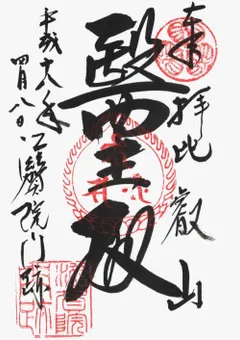 奉拝 比叡山
醫王殿
平成十八年
四月八日 滋賀院門跡